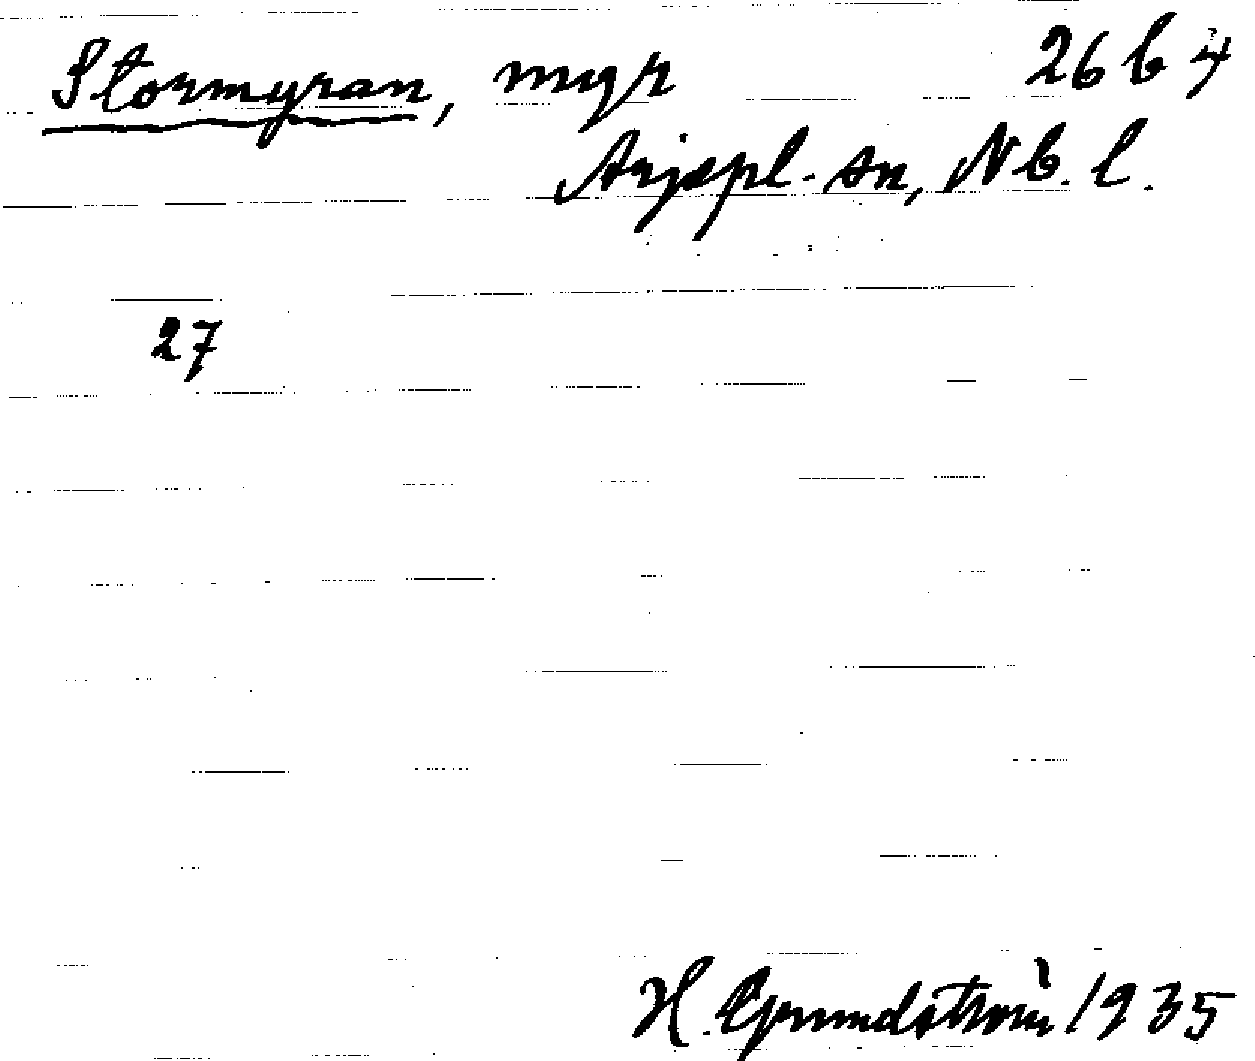 Stormyran, myr 26 b 4
Arjepl. sn, Nb. l.
27
H. Grundström 1935